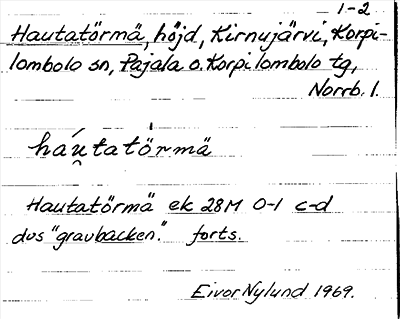 1-2
Hautatörmä, höjd, Kirnujärvi, Korpi-
lombolo sn, Pajala o. Korpilombolo tg,
Norrb. l.
háu̯tatörmä
Hautatörmä ek 28M 0-1 c-d
dvs "gravbacken." forts.
Eivor Nylund 1969.